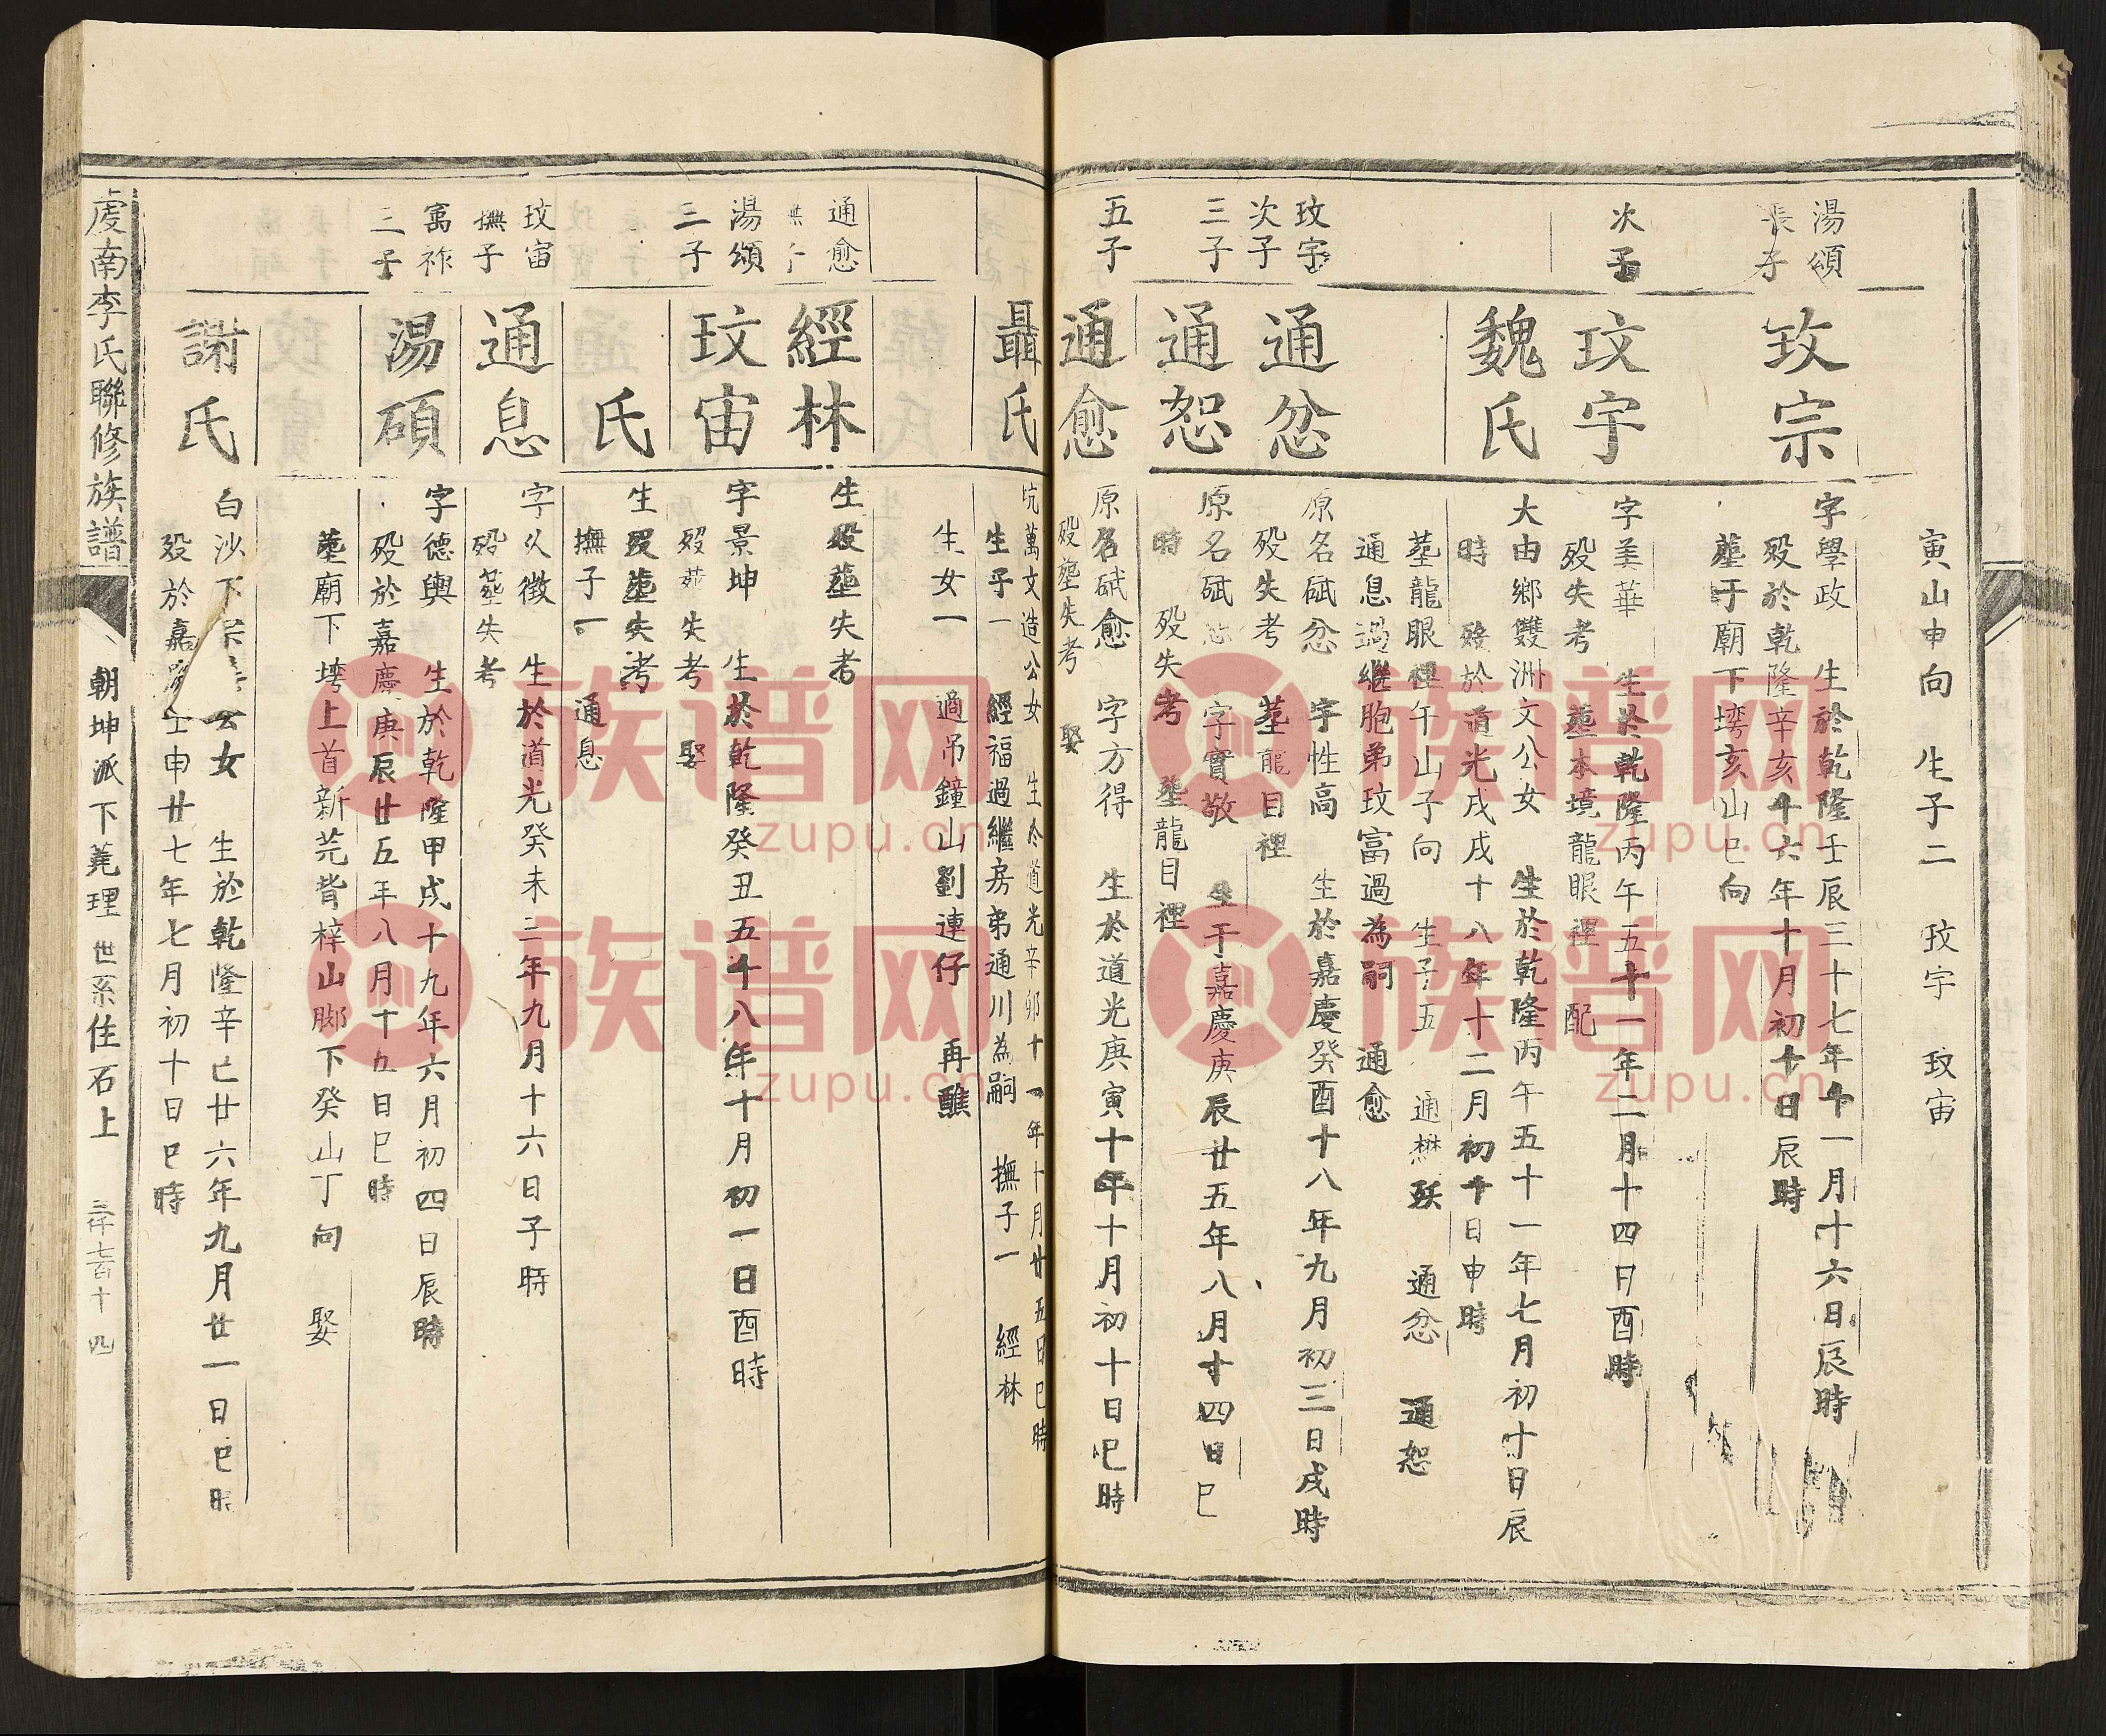 寅山申向 生子二 玟宇 玟宙
湯頌
長子
玟宗
字學政 生於乾隆壬辰三十七年十一月十六日辰時
歿於乾隆辛亥五十六年十月初十日辰時
塟于廟下塆亥山巳向
次子
玟宇
字美華 生於乾隆丙午五十一年二月十四日酉時
歿失考 塟本境龍眼裡 配
魏氏
大由鄉雙洲文公女 生於乾隆丙午五十一年七月初十日辰
時 歿於道光戌戌十八年十二月初十日申時
塟龍眼裡午山子向 生子五 通懋殀 通忿 通恕
通息過繼胞弟玟富過為嗣 通愈
玟宇
次子
通忿
原名斌忿 字性高 生於嘉慶癸酉十八年九月初三日戌時
歿失考 塟龍目裡
三子
通恕
原名斌恕 字實敬 生于嘉慶庚辰廿五年八月十四日巳
時 歿失考 塟龍目裡
五子
通愈
原名斌愈 字方得 生於道光庚寅十年十月初十日巳時
歿塟失考 娶
聶氏
坑萬文造公女 生於道光辛卯十一年十月廿五日巳時
生子一 經福過繼房弟通川為嗣 撫子一 經林
生女一 適吊鐘山劉連仔 再醮
通愈
撫子
經林
生歿塟失考
湯頌
三子
玟宙
字景坤 生於乾隆癸丑五十八年十月初一日酉時
歿塟失考 娶
氏
生歿塟失考
撫子一 通息
玟宙
撫子
通息
字久徵 生於道光癸未三年九月十六日子時
歿塟失考
萬祚
三子
湯碩
字德輿 生於乾隆甲戌十九年六月初四日辰時
歿於嘉慶庚辰廿五年八月十九日巳時
塟廟下塆上首新芫背梓山脚下癸山丁向 娶
謝氏
白沙下 公女 生於乾隆辛巳廿六年九月廿一日巳時
歿於嘉慶壬申廿七年七月初十日巳時
虔南李氏聯修族譜
朝坤派下蕘理世系住石上
三仟七百十四
族谱网
zupu.cn
族谱网
zupu.cn
族谱网
zupu.cn
族谱网
zupu.cn